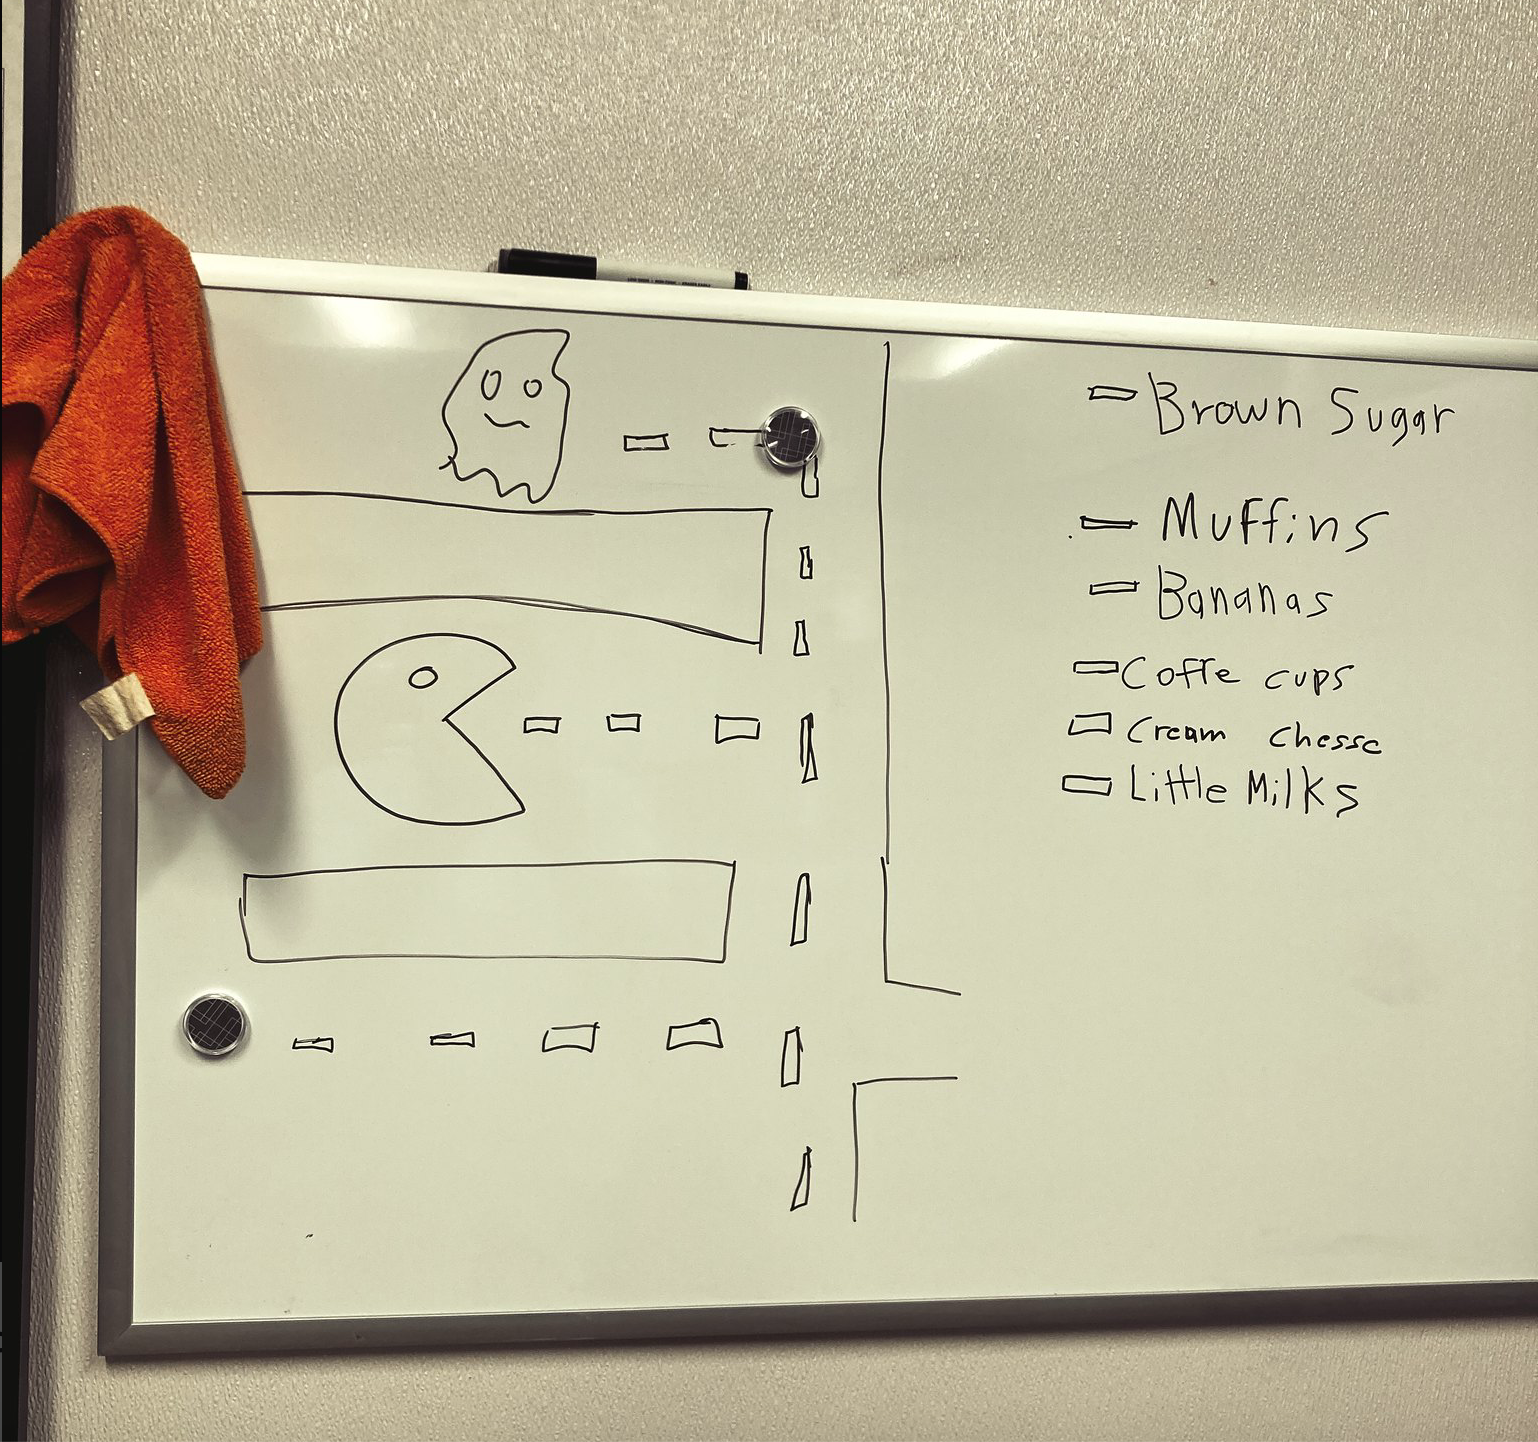 Brown Sugar
Muffins
Bananas
Coffe cups
Cream chesse
Little Milks